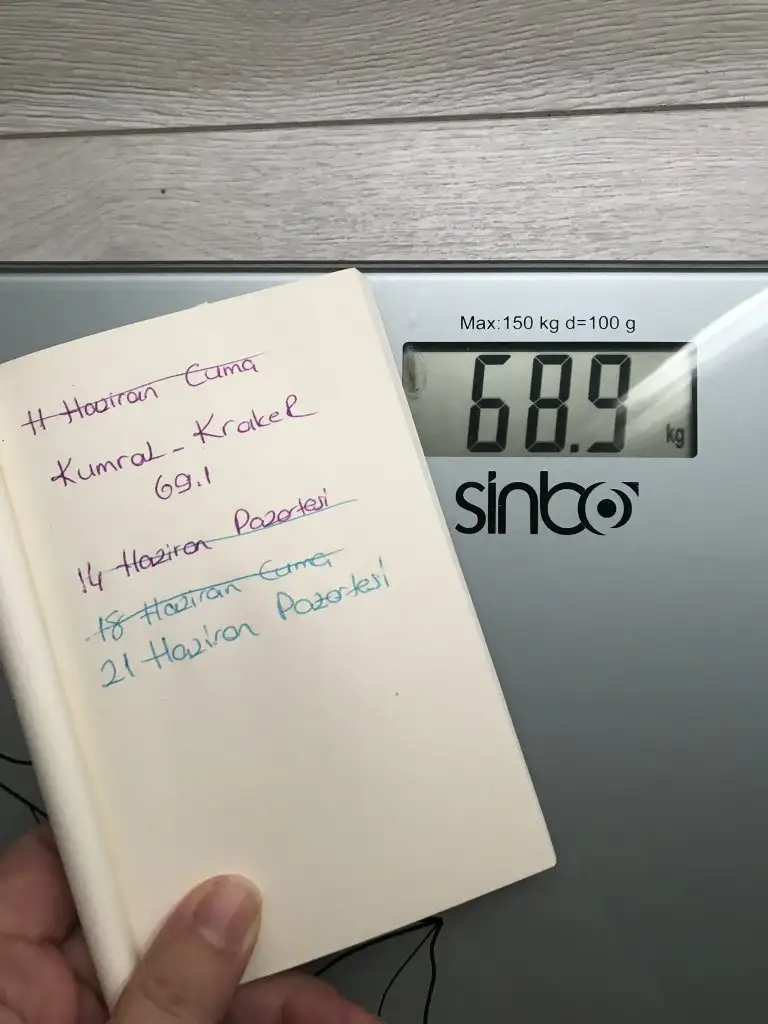 11 Haziran Cuma
Kumral - Kraker
69.1
14 Haziran Pazartesi
18 Haziran Cuma
21 Haziran Pazartesi
Max:150 kg d=100 g
68.9 kg
sinbo